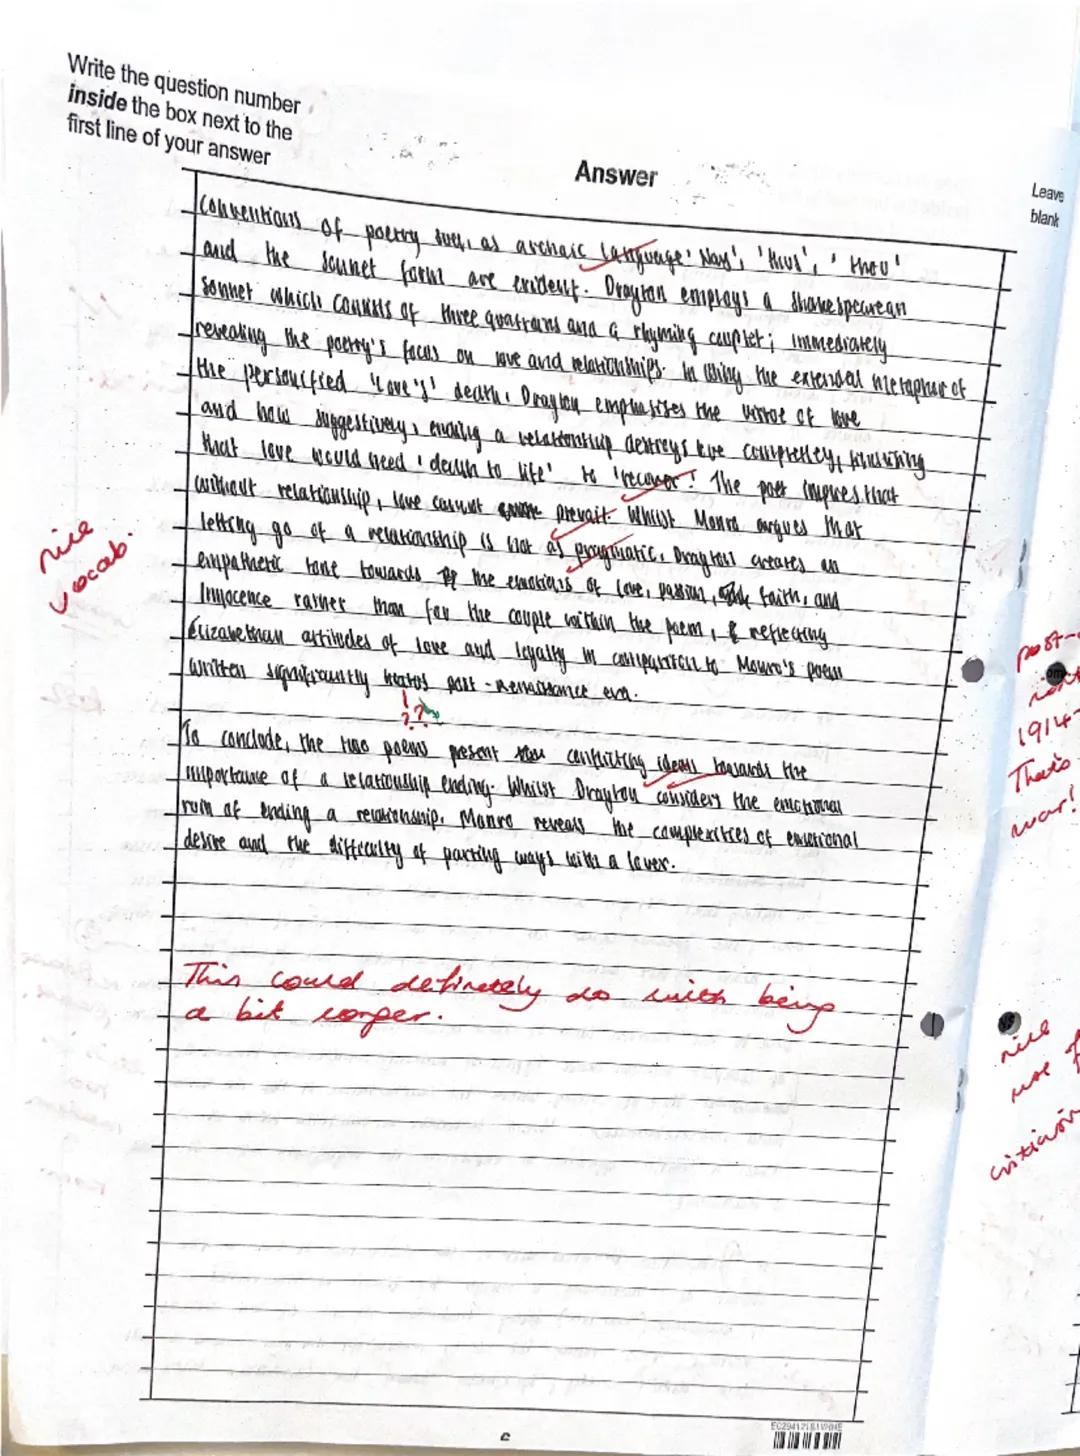 Write the question number
inside the box next to the
first line of your answer
Answer
Leave
blank
conventions of poetry such as archaic language 'Nay', 'thus', 'thou'
and the sonnet form are evident. Drayton employs a shakespearean
sonnet which consists of three quatrains and a rhyming couplet; immediately
revealing the poetry's focus on love and relationships. In using the extended metaphor of
the personified 'Love's' death, Drayton emphasises the virtue of love
and how suggestively, ending a relationship destroys love completely, knowing
that love would need 'death to life' to 'recover'. The poet implies that
without relationship, love cannot prevail. Whilst Monro argues that
letting go of a relationship is not as pragmatic, Drayton creates an
empathetic tone towards the emotions of love, passion, faith, and
Innocence rather than for the couple within the poem, reflecting
Elizabethan attitudes of love and loyalty in comparison to Monro's poem
written significantly post-Renaissance era.
! ??
To conclude, the two poems present conflicting ideas towards the
importance of a relationship ending. Whilst Drayton considers the emotional
ruin of ending a relationship, Monro reveals the complexities of emotional
desire and the difficulty of parting ways with a lover.
nice
vocab.
This could definetely do with being
a bit longer.
post-
1914-
That's
war!
nice
use
EC294121B1WHITE